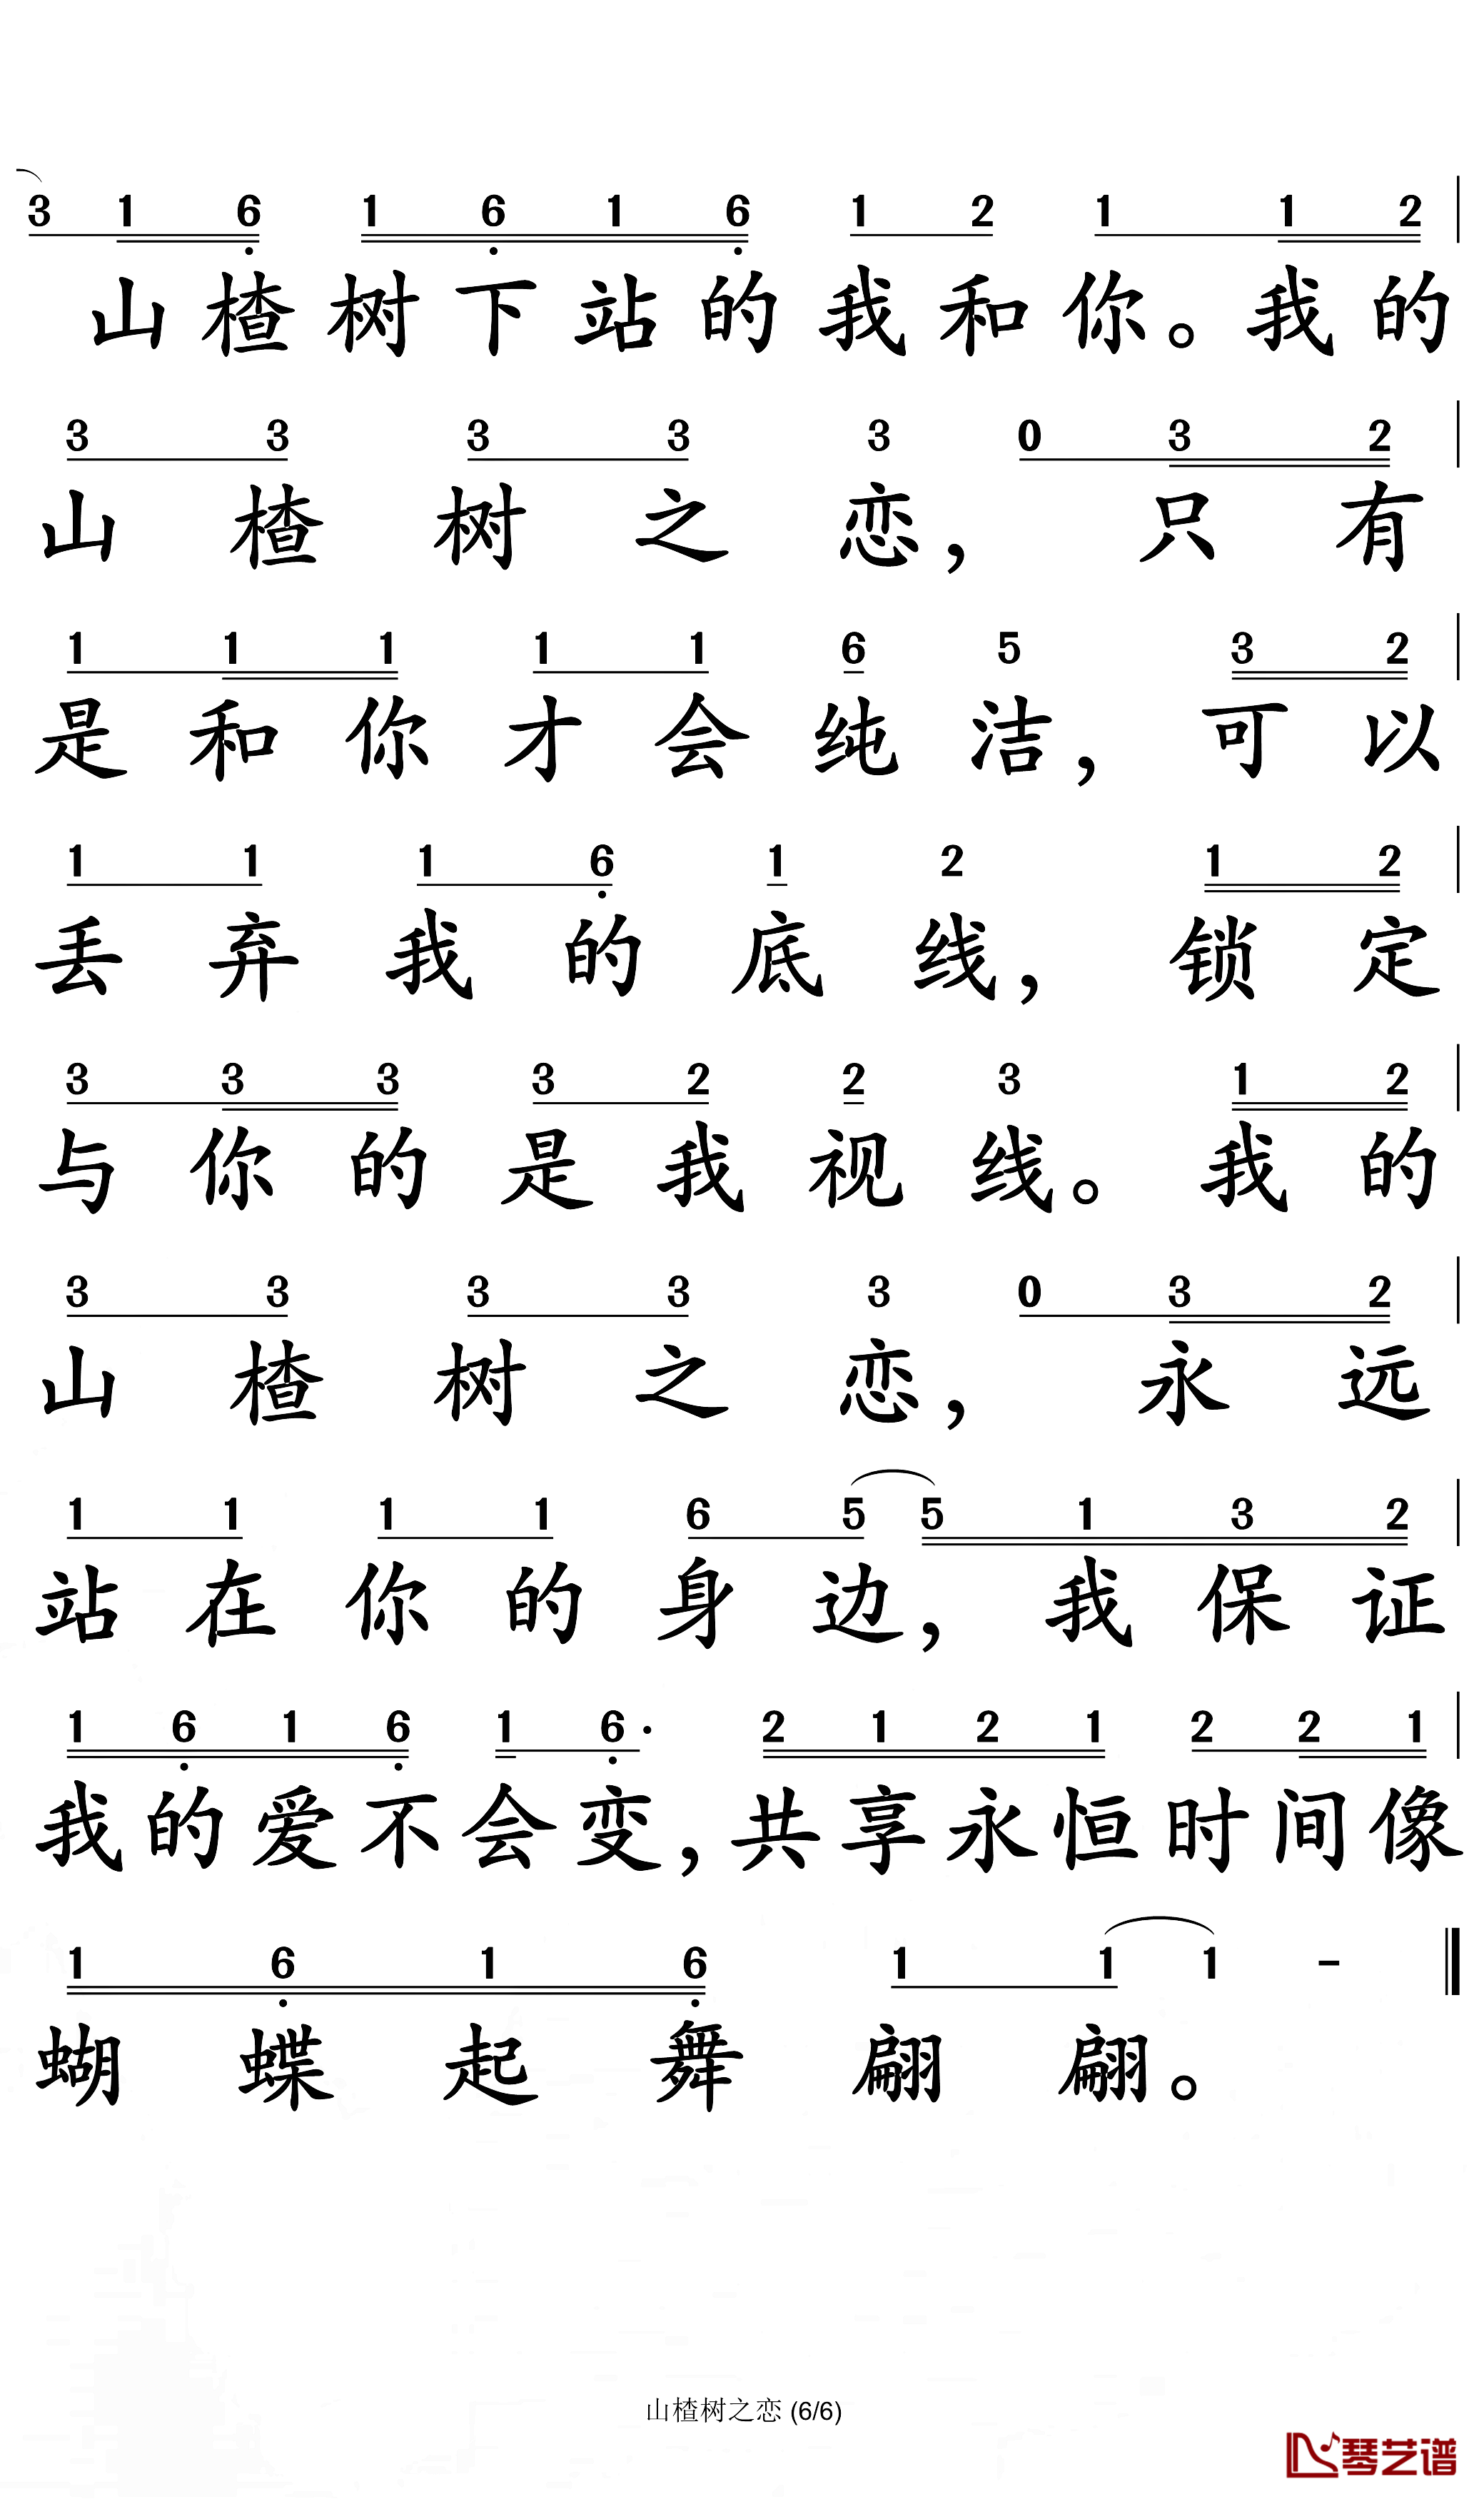 3 1 6 1 6 1 6 1 2 1 1 2
山楂树下站的我和你。我的
3 3 3 3 3 0 3 2
山楂树之恋，只有
1 1 1 1 1 6 5 3 2
是和你才会纯洁，可以
1 1 1 6 1 2 1 2
丢弃我的底线，锁定
3 3 3 3 2 2 3 1 2
与你的是我视线。我的
3 3 3 3 3 0 3 2
山楂树之恋，永远
1 1 1 1 6 5 5 1 3 2
站在你的身边，我保证
1 6 1 6 1 6· 2 1 2 1 2 2 1
我的爱不会变，共享永恒时间像
1 6 1 6 1 1 1 -
蝴蝶起舞翩翩。
山楂树之恋 (6/6)
琴艺谱